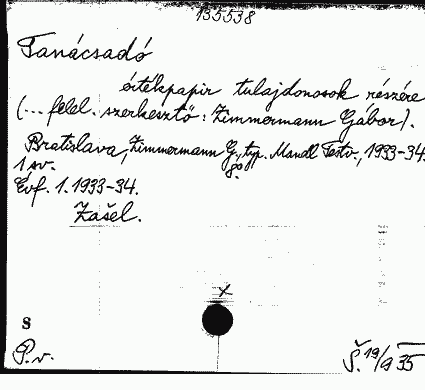 135538
Tanácsadó
értékpapír tulajdonosok részére
(... felel. szerkesztő: Zimmermann Gábor).
Bratislava, Zimmermann G., typ. Mandl Testv., 1933-34.
1 sv. 8°
Evf. 1. 1933-34.
Zašel.
x
S
P.v.
Š. 19/a 35